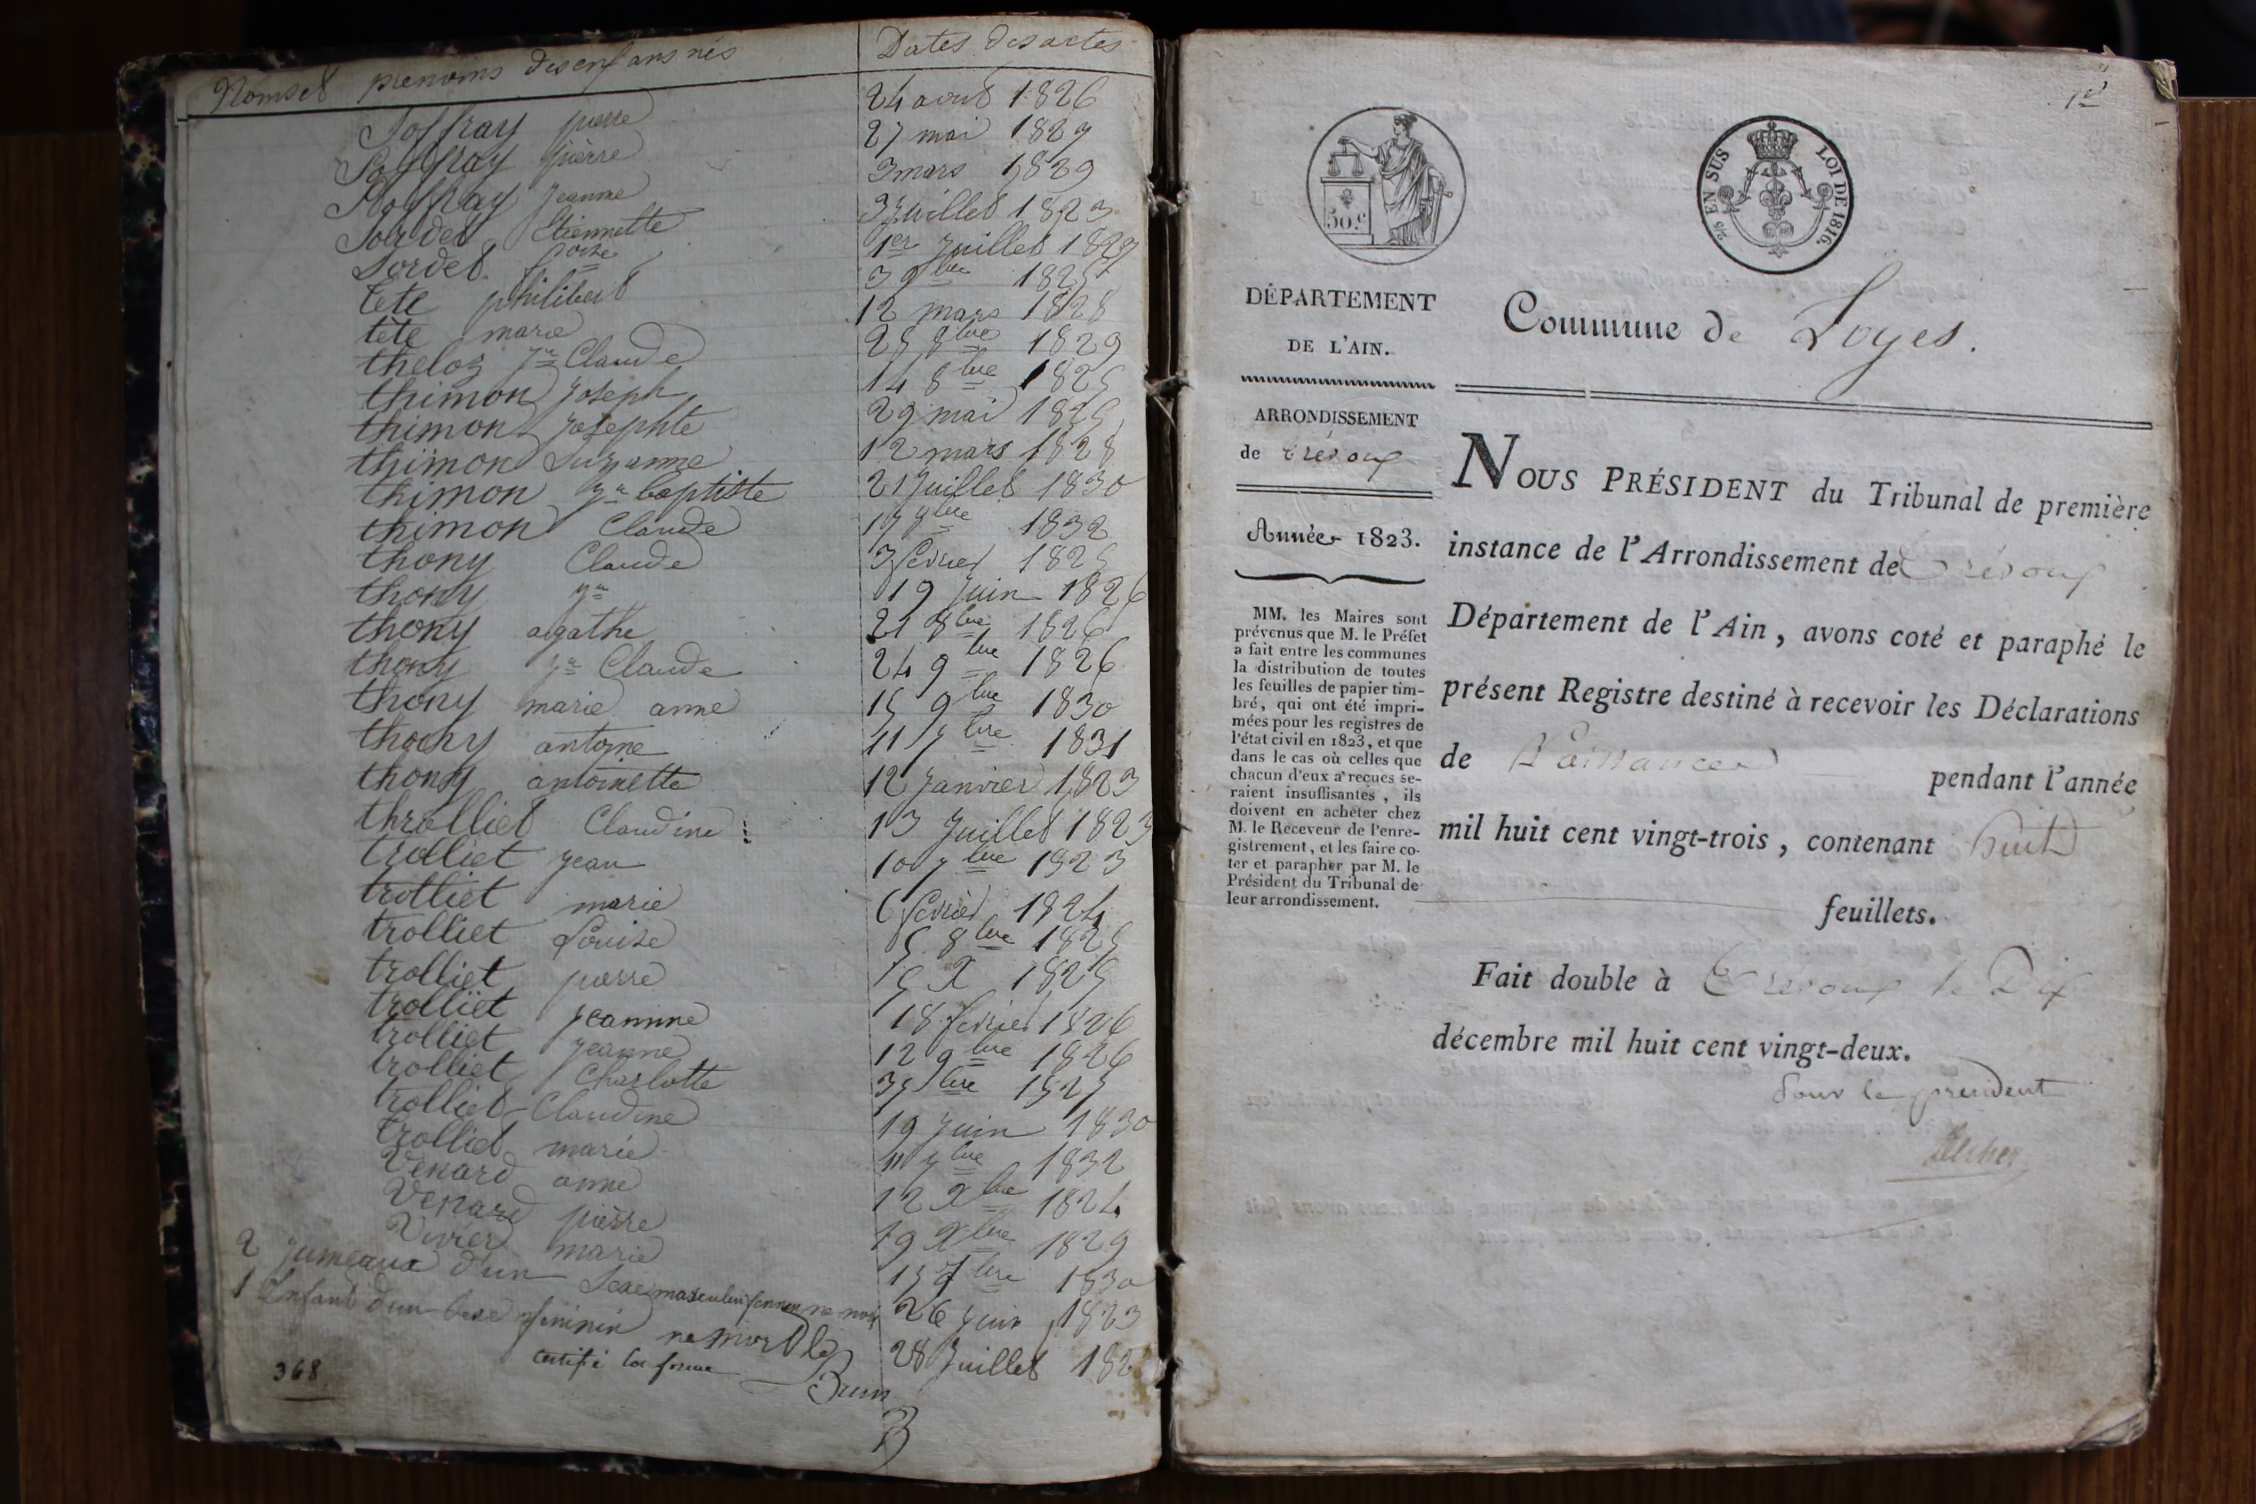 Noms et prenoms des enfans nés Dates des actes
Soffray pierre 24 aout 1826
Soffray pierre 27 mai 1827
Soffray Jeanne 3 mars 1829
Sordet Etiennette 3 Juillet 1823
Sordet 1er Juillet 1827
tete philibert 3 9bre 1825
tête marie 12 mars 1828
theloz Jn Claude 25 8bre 1829
thimon Joseph 14 8bre 1825
thimon Josephte 29 mai 1825
thimon Suzanne 12 mars 1828
thimon Jn baptiste 21 Juillet 1830
thimon Claude 1832
thony Claude 3 fevrier 1825
thony Jn 19 Juin 1826
thony agathe 21 8bre 1826
thony Jn Claude 24 9bre 1826
thony marie anne 15 9bre 1830
thony antoine 11 7bre 1831
thony antoinette 12 Janvier 1823
throlliet Claudine 13 Juillet 1823
trolliet Jean 10 7bre 1823
trolliet marie 6 fevrier 1824
trolliet Louise 5 8bre 1825
trolliet pierre 15 X 1825
trolliet Jeannine 18 fevrier 1826
trolliet Jeanne 12 9bre 1826
trolliet Charlotte
trolliet Claudine 19 Juin 1830
trolliet marie 7bre 1832
Venard anne 12 Xbre 1824
Venard pierre 19 Xbre 1829
Vivier marie 1830
2 Jumeaux d'un Sexe masculin 26 Juin 1823
1 Enfant d'un Sexe féminin né mort le 28 Juillet
certifié
368
1er
50 c
25 EN SUS LOI DE 1816.
DÉPARTEMENT
DE L'AIN.
Commune de Loyes.
ARRONDISSEMENT
de trévoux
Année 1823.
MM. les Maires sont
prévenus que M. le Préfet
a fait entre les communes
la distribution de toutes
les feuilles de papier tim-
bré, qui ont été impri-
mées pour les registres de
l'état civil en 1823, et que
dans le cas où celles que
chacun d'eux a reçues se-
raient insuffisantes, ils
doivent en acheter chez
M. le Receveur de l'enre-
gistrement, et les faire co-
ter et parapher par M. le
Président du Tribunal de
leur arrondissement.
NOUS PRÉSIDENT du Tribunal de première
instance de l'Arrondissement de Trévoux
Département de l'Ain, avons coté et paraphé le
présent Registre destiné à recevoir les Déclarations
de Naissances pendant l'année
mil huit cent vingt-trois, contenant huit
feuillets.
Fait double à Trévoux le Dix
décembre mil huit cent vingt-deux.
Pour le president